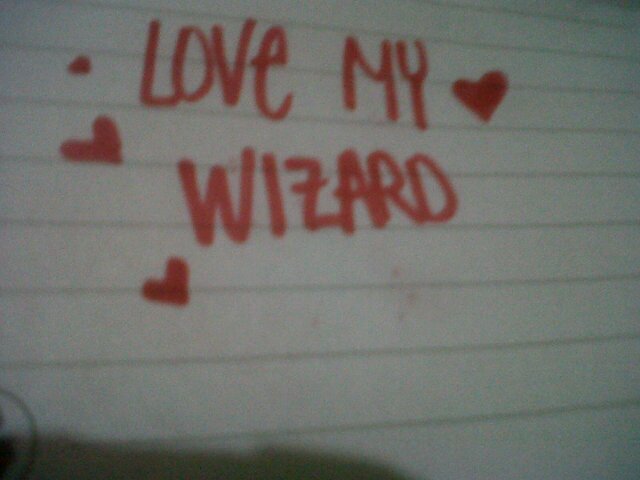 LOVE MY
WIZARD